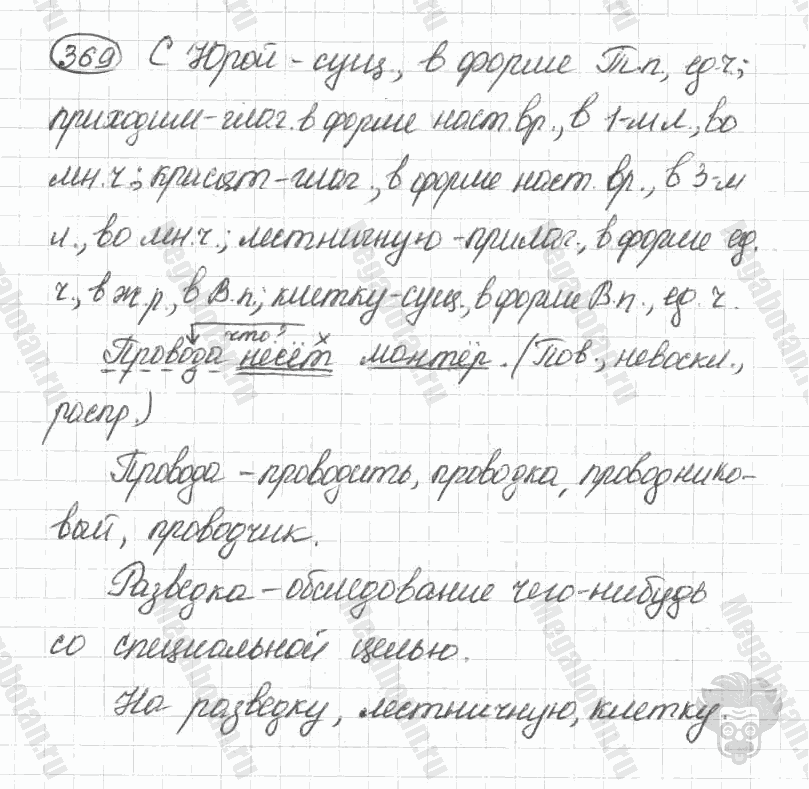 369 С Юрой - сущ., в форме Т.п, ед.ч;
приходим-глаг. в форме наст.вр., в 1-м л., во
мн.ч; красят-глаг., в форме наст. вр., в 3-м
л., во мн.ч.; лестничную-прилаг., в форме ед.
ч., в ж.р., в В.п; клетку-сущ., в форме В.п., ед. ч.
что? х
Провода несёт монтёр. (Пов., невоскл.,
распр.)
Провода - проводить, проводка, проводнико-
вый, проводчик.
Разведка - обследование чего-нибудь
со специальной целью.
На разведку, лестничную, клетку.
Megabotan.ru